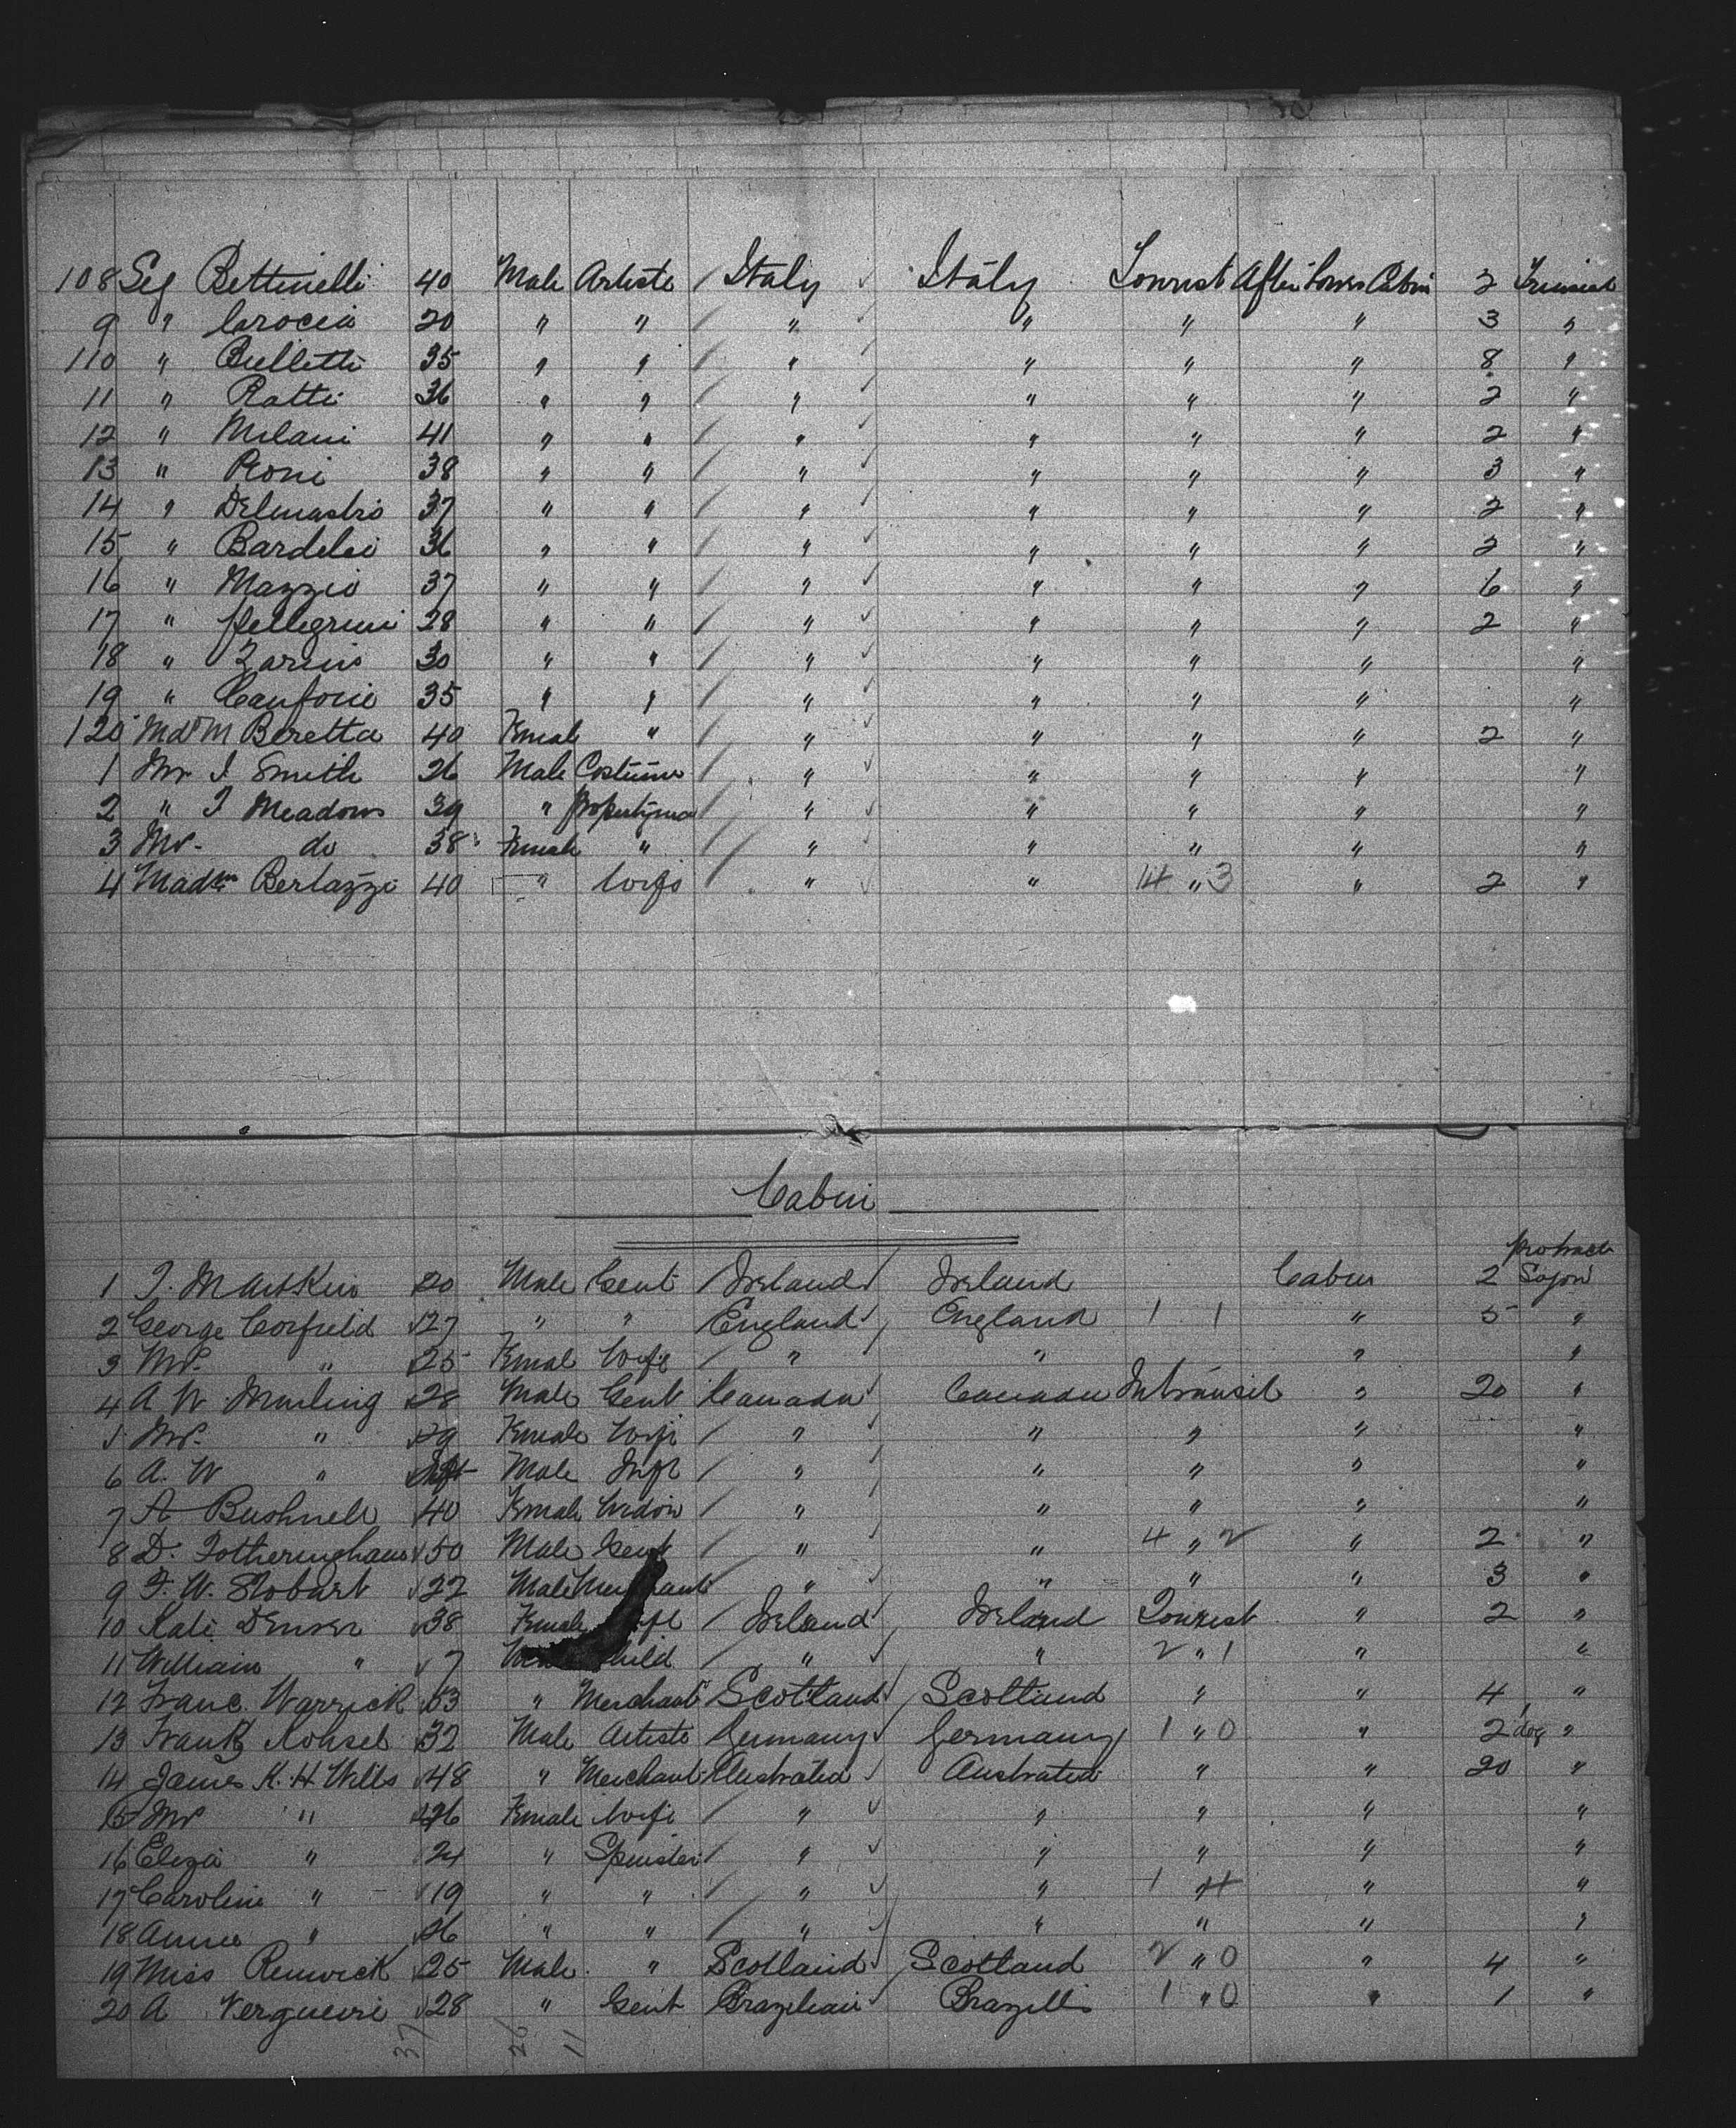 108 Sig Bettinelli 40 Male Artiste / Italy Italy Tourist After Lower Cabin 2
9 " Carocia 20 " " / " " " " 3 "
110 " Bulletti 35 " " / " " " " 8 "
11 " Ratti 36 " " / " " " " 2 "
12 " Milani 41 " " / " " " " 2 "
13 " Peoni 38 " " / " " " " 3 "
14 " Delmastro 37 " " / " " " " 2 "
15 " Bardelei 36 " " / " " " " 2 "
16 " Mazzio 37 " " / " " " " 6 "
17 " Pellegrini 28 " " / " " " " 2 "
18 " Zarinis 30 " " / " " " " "
19 " 35 " " / " " " " "
120 Mdm M Beretta 40 Female " " " " " 2 "
1 Mr J Smith 26 Male Costumer / " " " " "
2 " J Meadows 39 " Propertyman / " " " " "
3 Mrs do 38 Female " / " " " " "
4 Madm Bertazzi 40 " Wife / " " 14 " 3 " 2 "
Cabin
protracted
1 J. 20 Male Gent / Ireland Ireland Cabin 2 Sojorn
2 George Corfield 27 " " England England 1 1 " 5 "
3 Mrs " 25 Female Wife / " " " "
4 A W Murling 28 Male Gent Canada Canada In transit " 20 "
5 Mrs " 29 Female Wife / " " " " "
6 A. W " Inft Male Inft / " " " " "
7 A Bushnell 40 Female Widow / " " " " "
8 D. Fotheringham 50 Male Gent / " " 4 " 2 " 2 "
9 F. W. Stobart 22 Male Merchant " " " " 3 "
10 Kate Denver 38 Female Wife / Ireland Ireland Tourist " 2 "
11 William " 7 Child / " " 2 " 1 " "
12 Franc. Warrick 53 " Merchant Scotland Scotland " " 4 "
13 Frank Kohsel 32 Male Artiste Germany Germany 1 " 0 " 2 "
14 James K. H Wells 48 " Merchant Australia Australia " " 20 "
15 Mrs " 46 Female Wife / " " " " "
16 Eliza " 24 " Spinster / " " " " "
17 Caroline " 19 " " / " " 1 " 4 " "
18 Annie " 26 " " / " " " " "
19 Miss Renwick 25 Male " Scotland Scotland 2 " 0 " 4 "
20 A Vergueiri 28 " Gent Brazilian Brazills 1 " 0 " 1 "
37 26 11